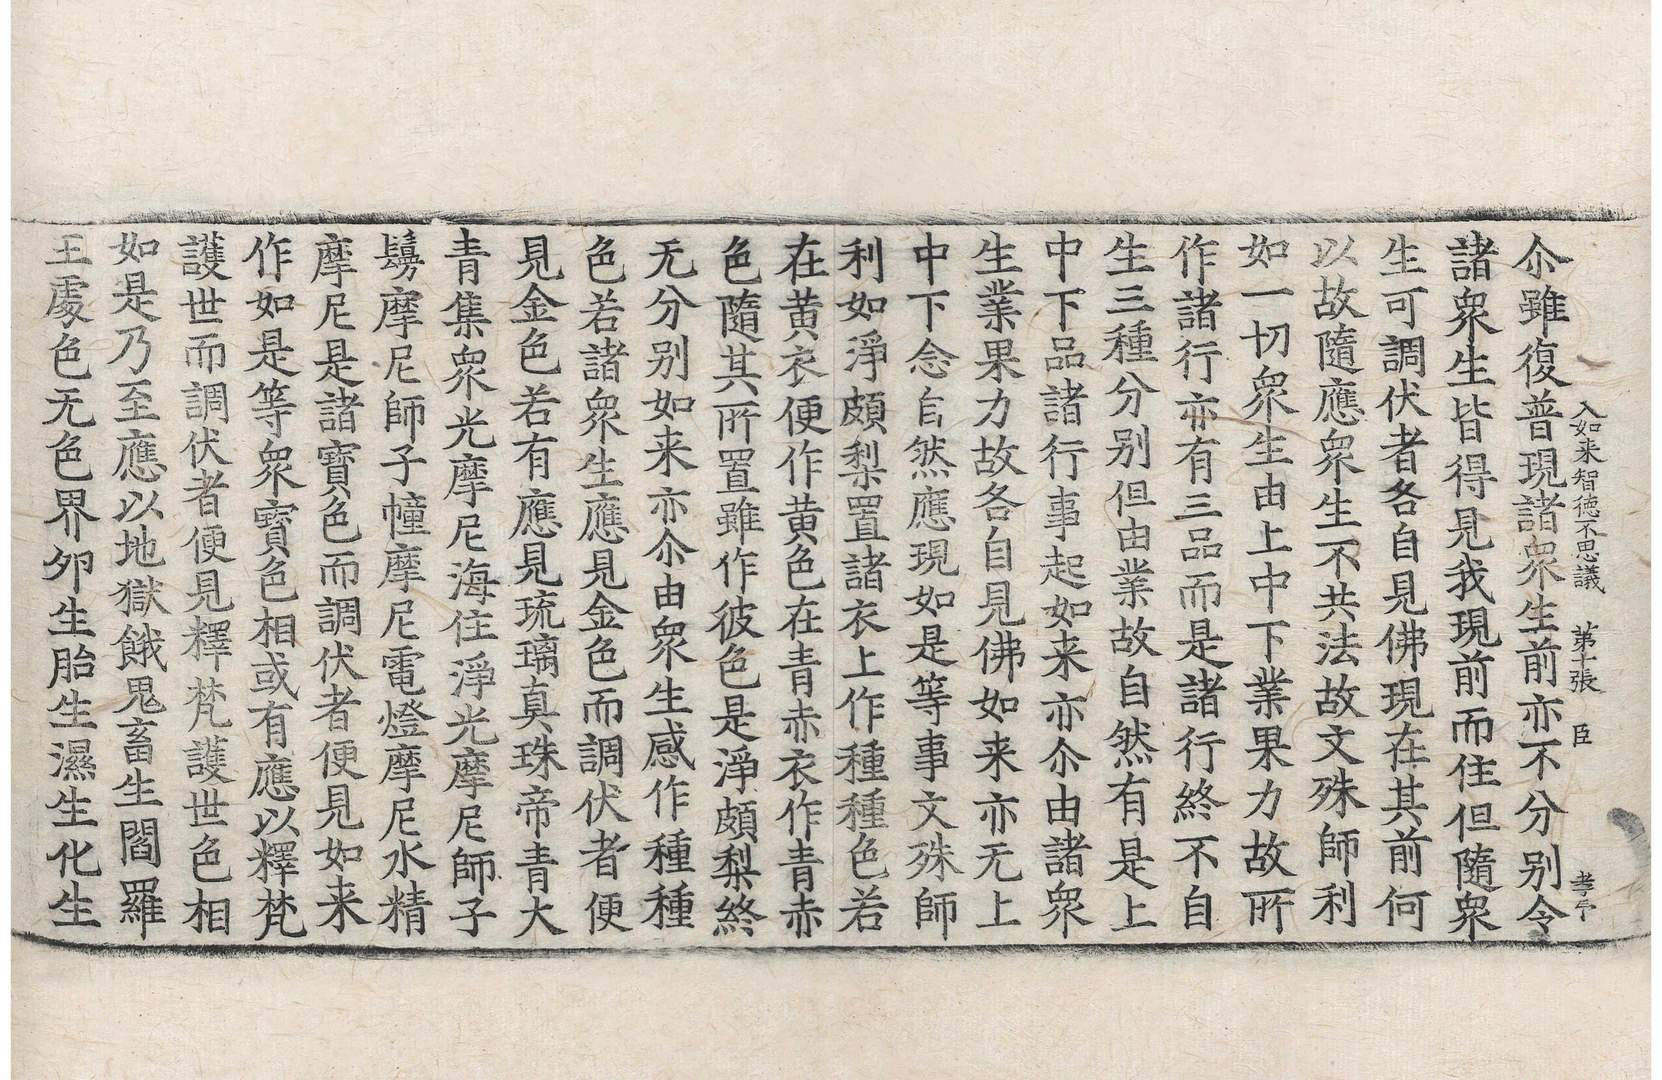 入如来智德不思議　第十張　臣　孝亭
尒雖復普現諸衆生前亦不分别令
諸衆生皆得見我現前而住但隨衆
生可調伏者各自見佛現在其前何
以故隨應衆生不共法故文殊師利
如一切衆生由上中下業果力故所
作諸行亦有三品而是諸行終不自
生三種分别但由業故自然有是上
中下品諸行事起如来亦尒由諸衆
生業果力故各自見佛如来亦无上
中下念自然應現如是等事文殊師
利如淨頗梨置諸衣上作種種色若
在黄衣便作黄色在青赤衣作青赤
色隨其所置雖作彼色是淨頗梨終
无分别如来亦尒由衆生感作種種
色若諸衆生應見金色而調伏者便
見金色若有應見琉璃真珠帝青大
青集衆光摩尼海住淨光摩尼師子
鬘摩尼師子幢摩尼電燈摩尼水精
摩尼是諸寶色而調伏者便見如来
作如是等衆寶色相或有應以釋梵
護世而調伏者便見釋梵護世色相
如是乃至應以地獄餓鬼畜生閻羅
王處色无色界夘生胎生濕生化生